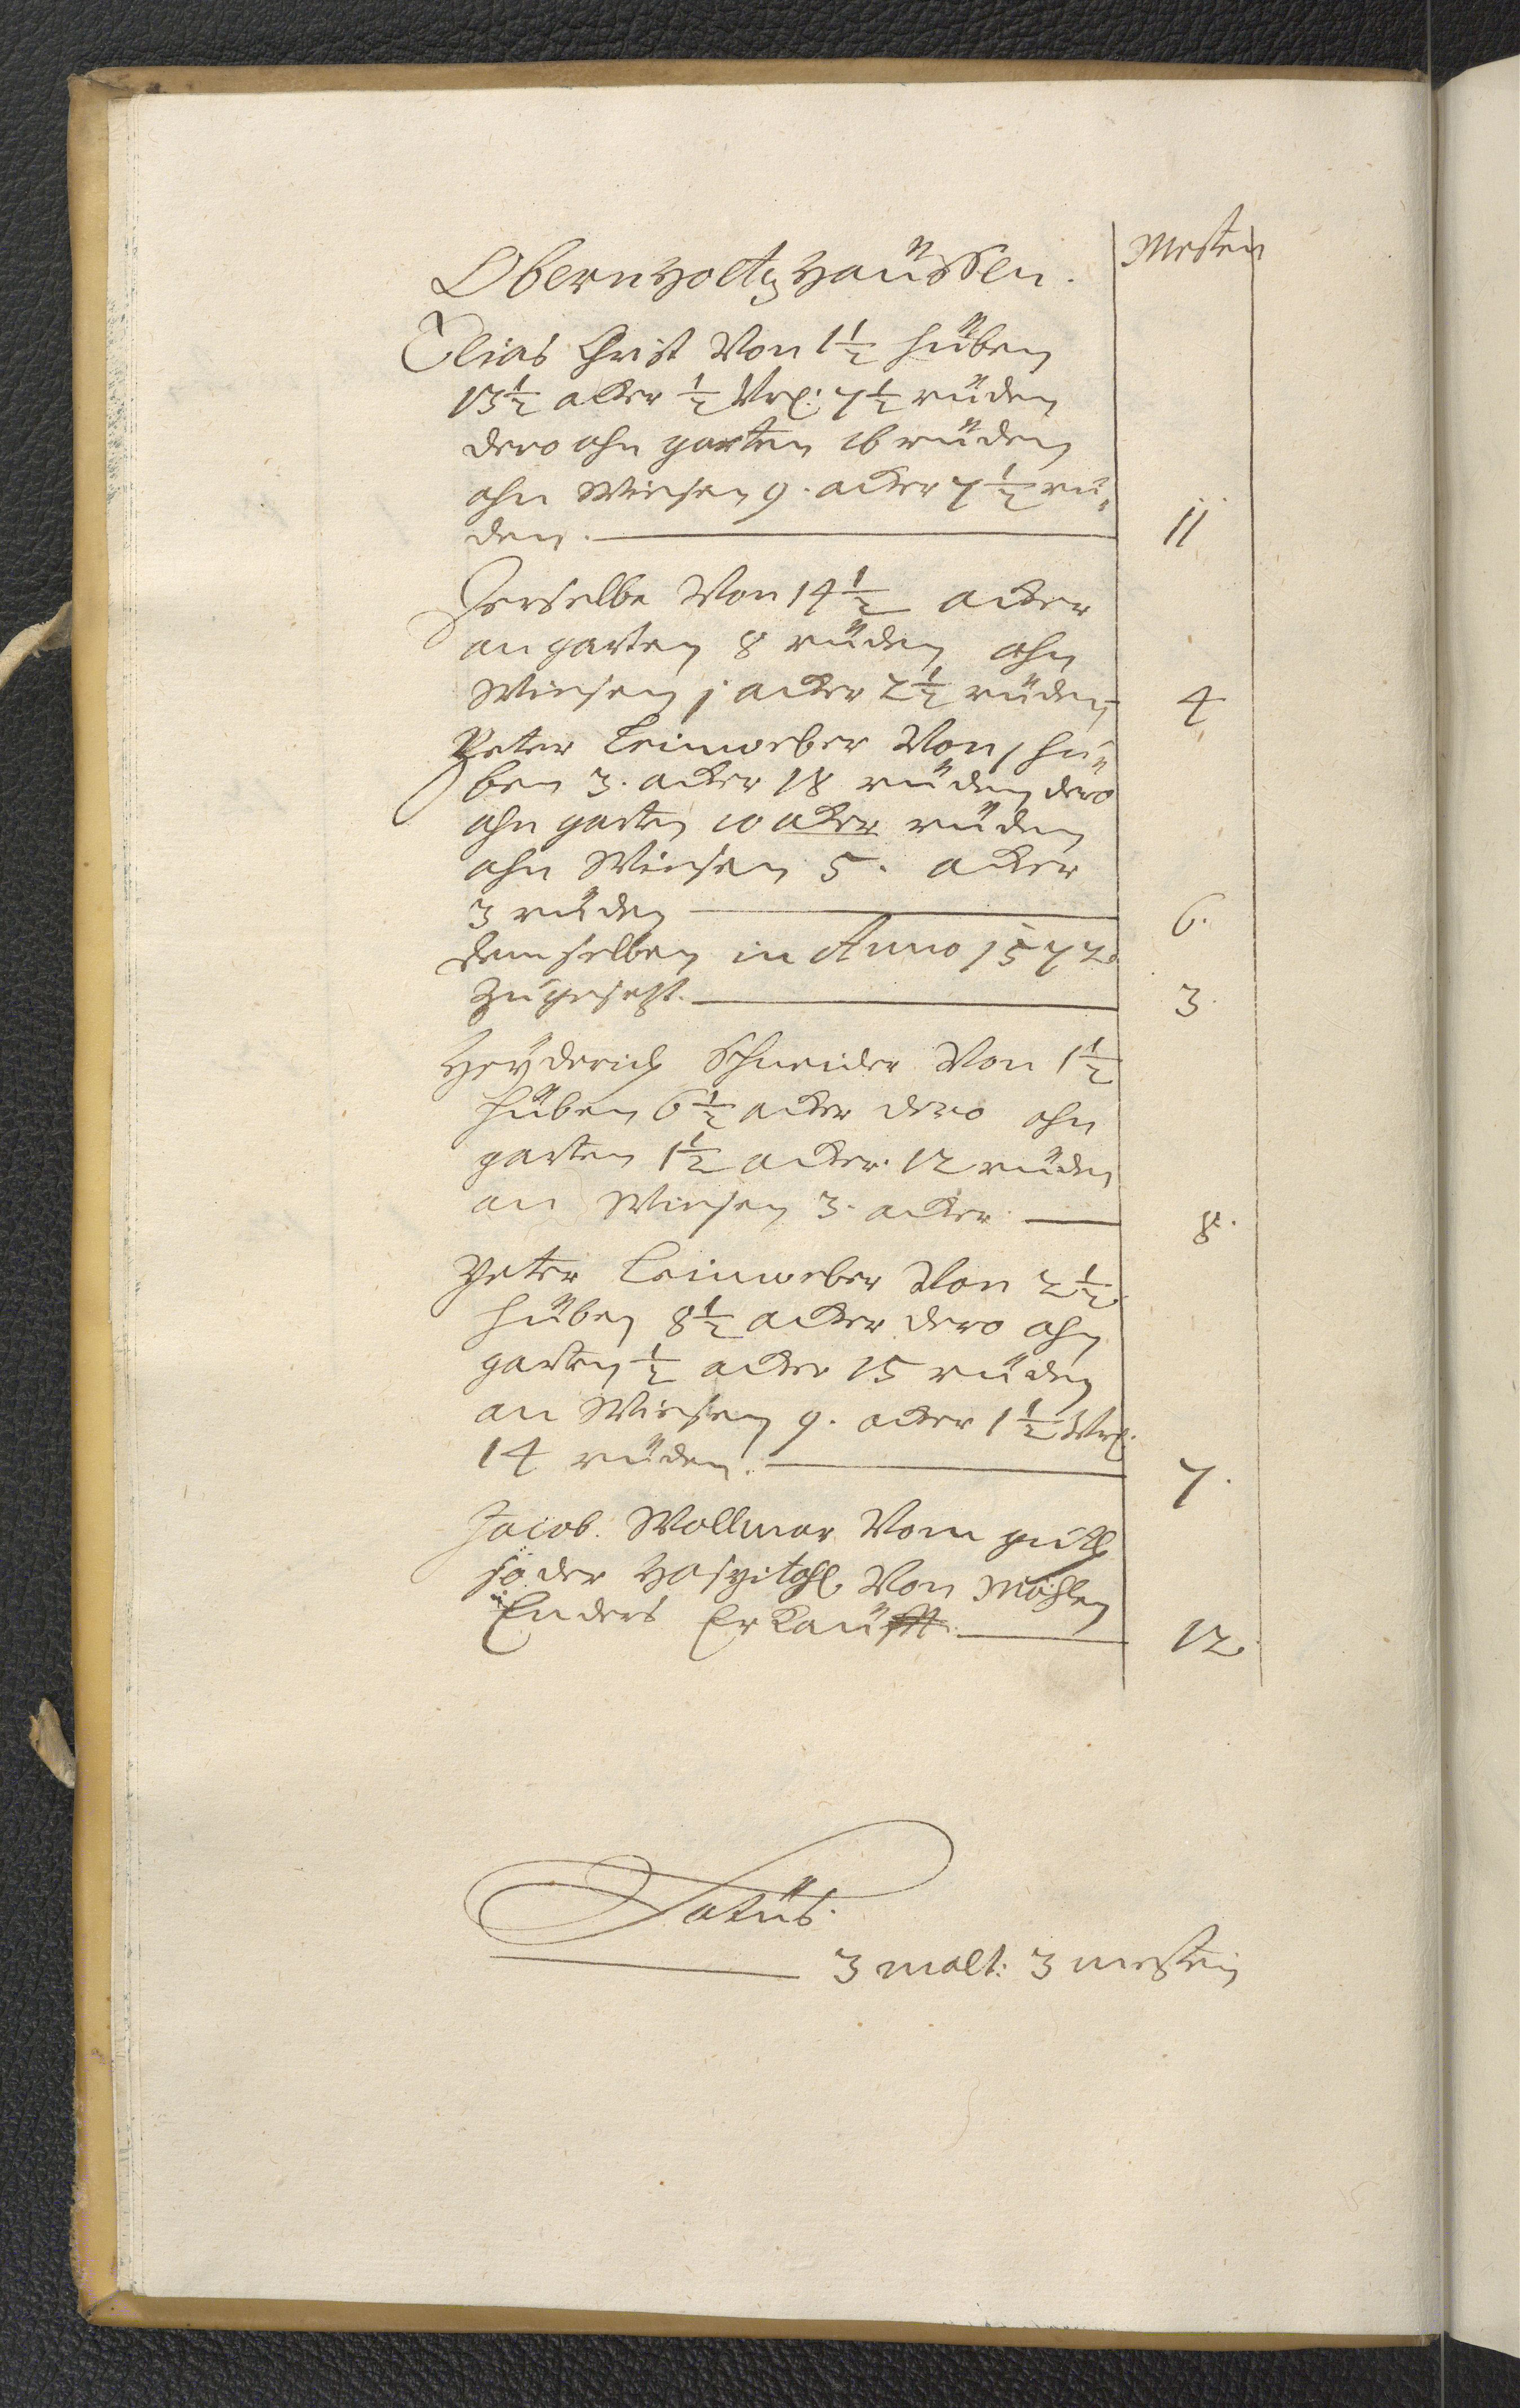 Mesten
Obernholtzhaüssen.
Elias Christ Von 1 1/2 hüben
13 1/2 acker 1/2 Vrl: 7 1/2 rüden
dero ahn garten 16 rüden
ahn Wiesen 9. acker 7 1/2 rü-
den. 11
Derselbe Von 14 1/2 acker
an garten 8 rüden ahn
Wiesen j acker 2 1/2 rüden 4
Peter Leinweber Von 1 hü-
ben 3. acker 18 rüden dero
ahn garten 10 acker rüden
ahn Wiesen 5. acker
3 rüden 6.
demselben in Anno 1572.
Zügesetzt. 3.
Heyderich Schneider Von 1 1/2
hüben 6 1/2 acker dero ahn
garten 1 1/2 acker 12 rüden
an Wiesen 3. acker 8.
Peter Leinweber Von 2 1/2
hüben 8 1/2 acker dero ahn
garten 1/2 acker 15 rüden
an Wiesen 9. acker 1 1/2 Vrl.
14 rüden. 7.
Jacob Wollmar Vom güth
so der Hospitahl Von Möhlen
Enders Erkaüfft. 12.
Latüs.
3 malt: 3 mesten